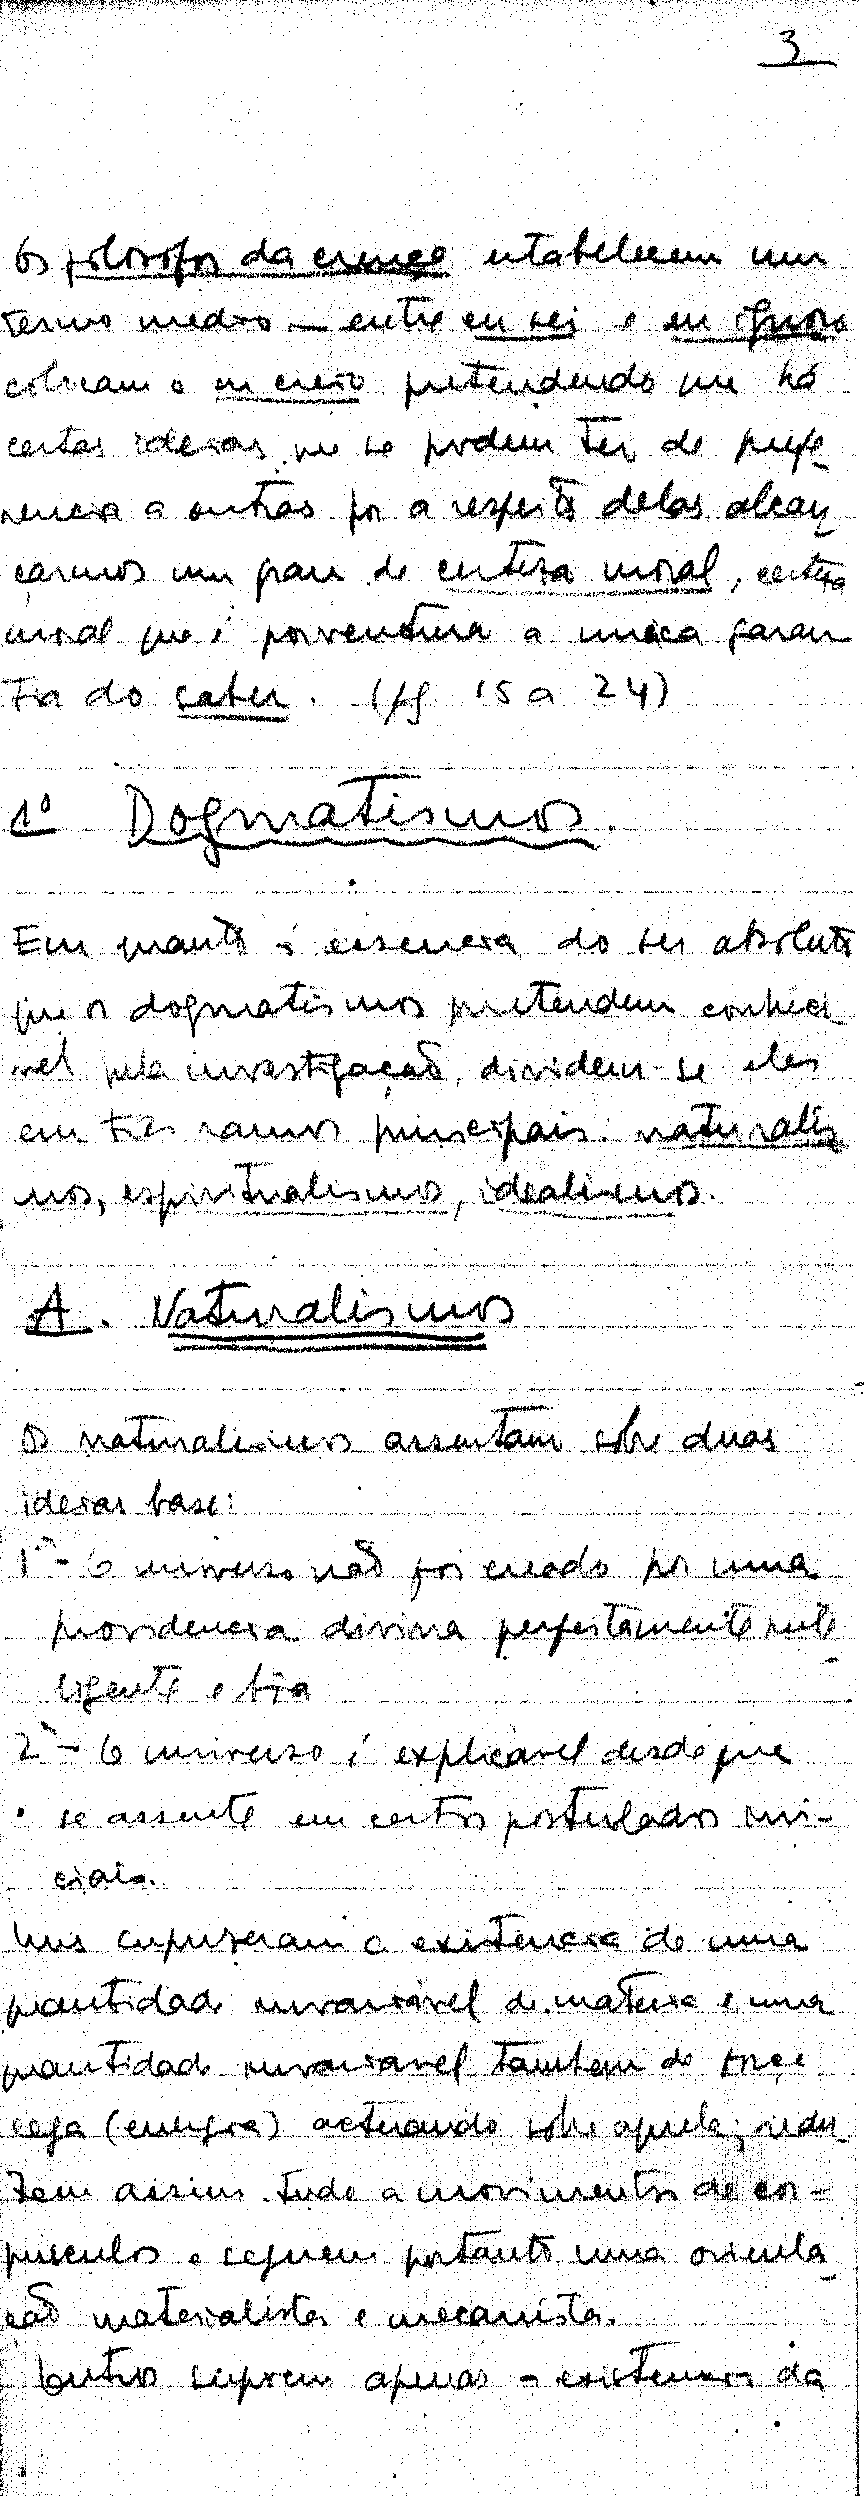 3
Os filosofos da crença estabelecem um
termo medio — entre eu sei e eu ignoro
colocam o eu creio pretendendo que há
certas ideias que se podem ter de prefe-
rencia a outras por a respeito delas alcan-
çarmos um grau de certeza moral, certeza
moral que é porventura a unica garan
tia do saber. (pg 15 a 24)
1º Dogmatismos.
Em quanto á essencia do ser absoluto
que os dogmatismos pretendem conheci
vel pela investigação, dividem-se eles
em três ramos principais: naturalis
mos, espiritualismos, idealismos.
A. Naturalismos
Os naturalismos assentam sobre duas
ideias base:
1ª - O universo não foi creado por uma
providencia divina perfeitamente inte
ligente e boa
2ª - O universo é explicavel desde que
se assente em certos postulados ini-
ciais.
Uns supuzeram a existencia de uma
quantidade invariável de materia e uma
quantidade invariavel tambem de força
cega (energia) actuando sobre aquela; redu
zem assim tudo a movimentos de cor-
pusculos e seguem portanto uma orienta
ção materialista e mecanista.
Outros supõem apenas a existencia da